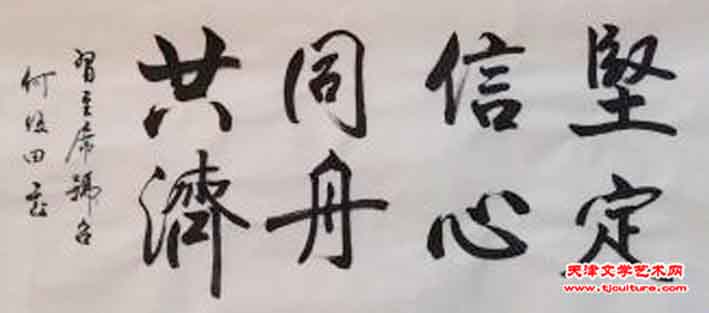 堅定
信心
同舟
共濟
習主席號召
何俊田书
天津文学艺术网
www.tjculture.com